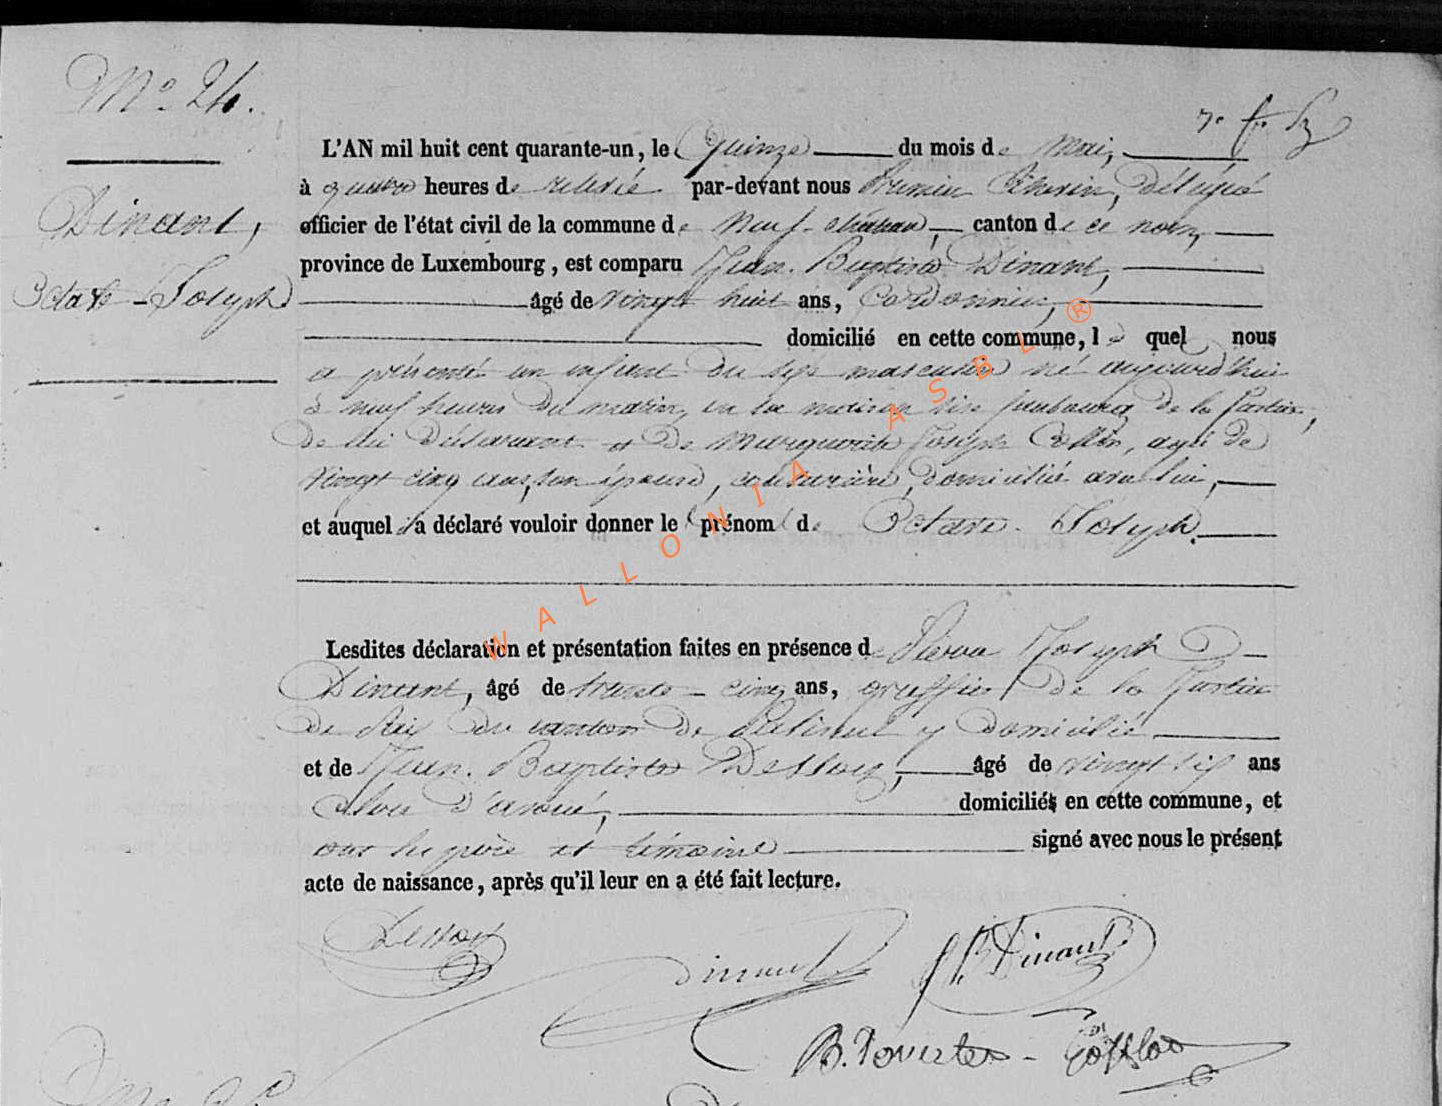 N° 24.
Dinant,
Octave Joseph
L'AN mil huit cent quarante-un, le Quinze du mois de Mai,
à quatre heures de relevée par-devant nous délégué
officier de l'état civil de la commune de Neuf-château, canton de ce nom,
province de Luxembourg, est comparu Jean-Baptiste Dinant,
âgé de vingt huit ans, Cordonnier,
domicilié en cette commune, lequel nous
a présenté un enfant du sexe masculin né aujourd'hui
à neuf heures du matin, en la maison sise faubourg de la
de lui déclarant et de Marguerite Joseph Collin, agée de
vingt cinq ans, son épouse, couturière, domicilié avec lui,
et auquel il a déclaré vouloir donner les prénoms de Octave Joseph.
Lesdites déclaration et présentation faites en présence de Pierre Joseph
Dinant, âgé de trente-cinq ans, greffier de la Justice
de Paix du canton de y domicilié
et de Jean-Baptiste Dessoy, âgé de vingt six ans
clerc d'avoué, domiciliés en cette commune, et
ont les père et témoins signé avec nous le présent
acte de naissance, après qu'il leur en a été fait lecture.
Dessoy
Dinant
J B Dinant
WALLONIA ASBL ®